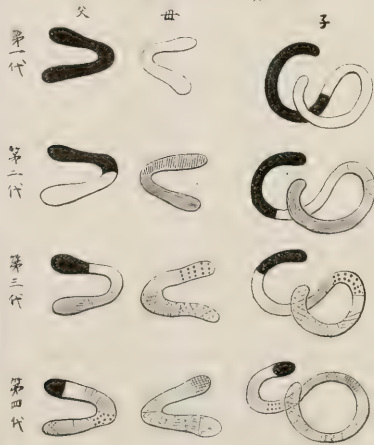 父 母 子
第一代
第二代
第三代
第四代